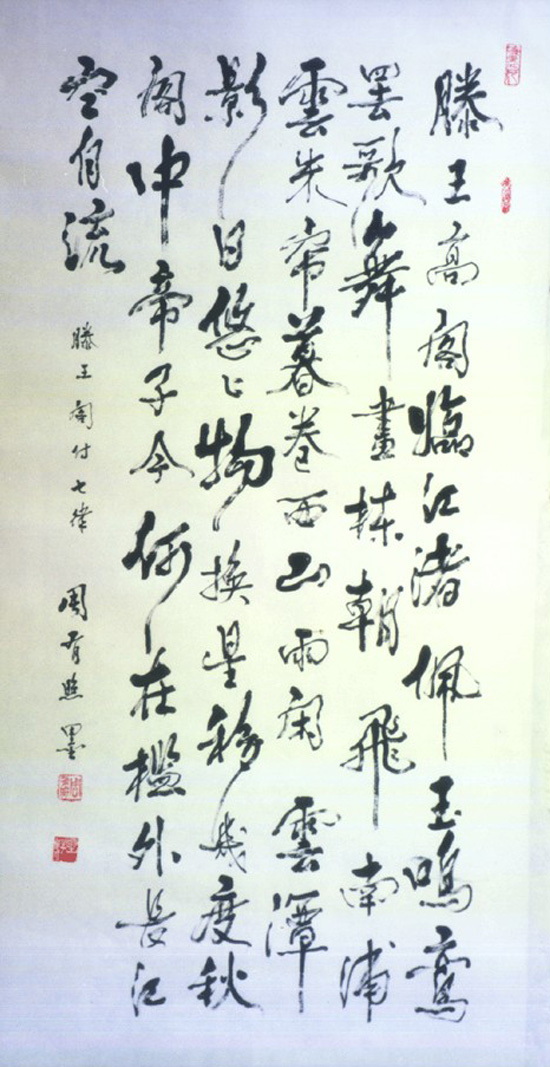 滕王高阁臨江渚佩玉鳴鸾
罢歌舞畫棟朝飛南浦
雲朱帘暮卷西山雨闲雲潭
影日悠々物换星移幾度秋
阁中帝子今何在檻外長江
空自流
滕王阁付七律 周有照墨